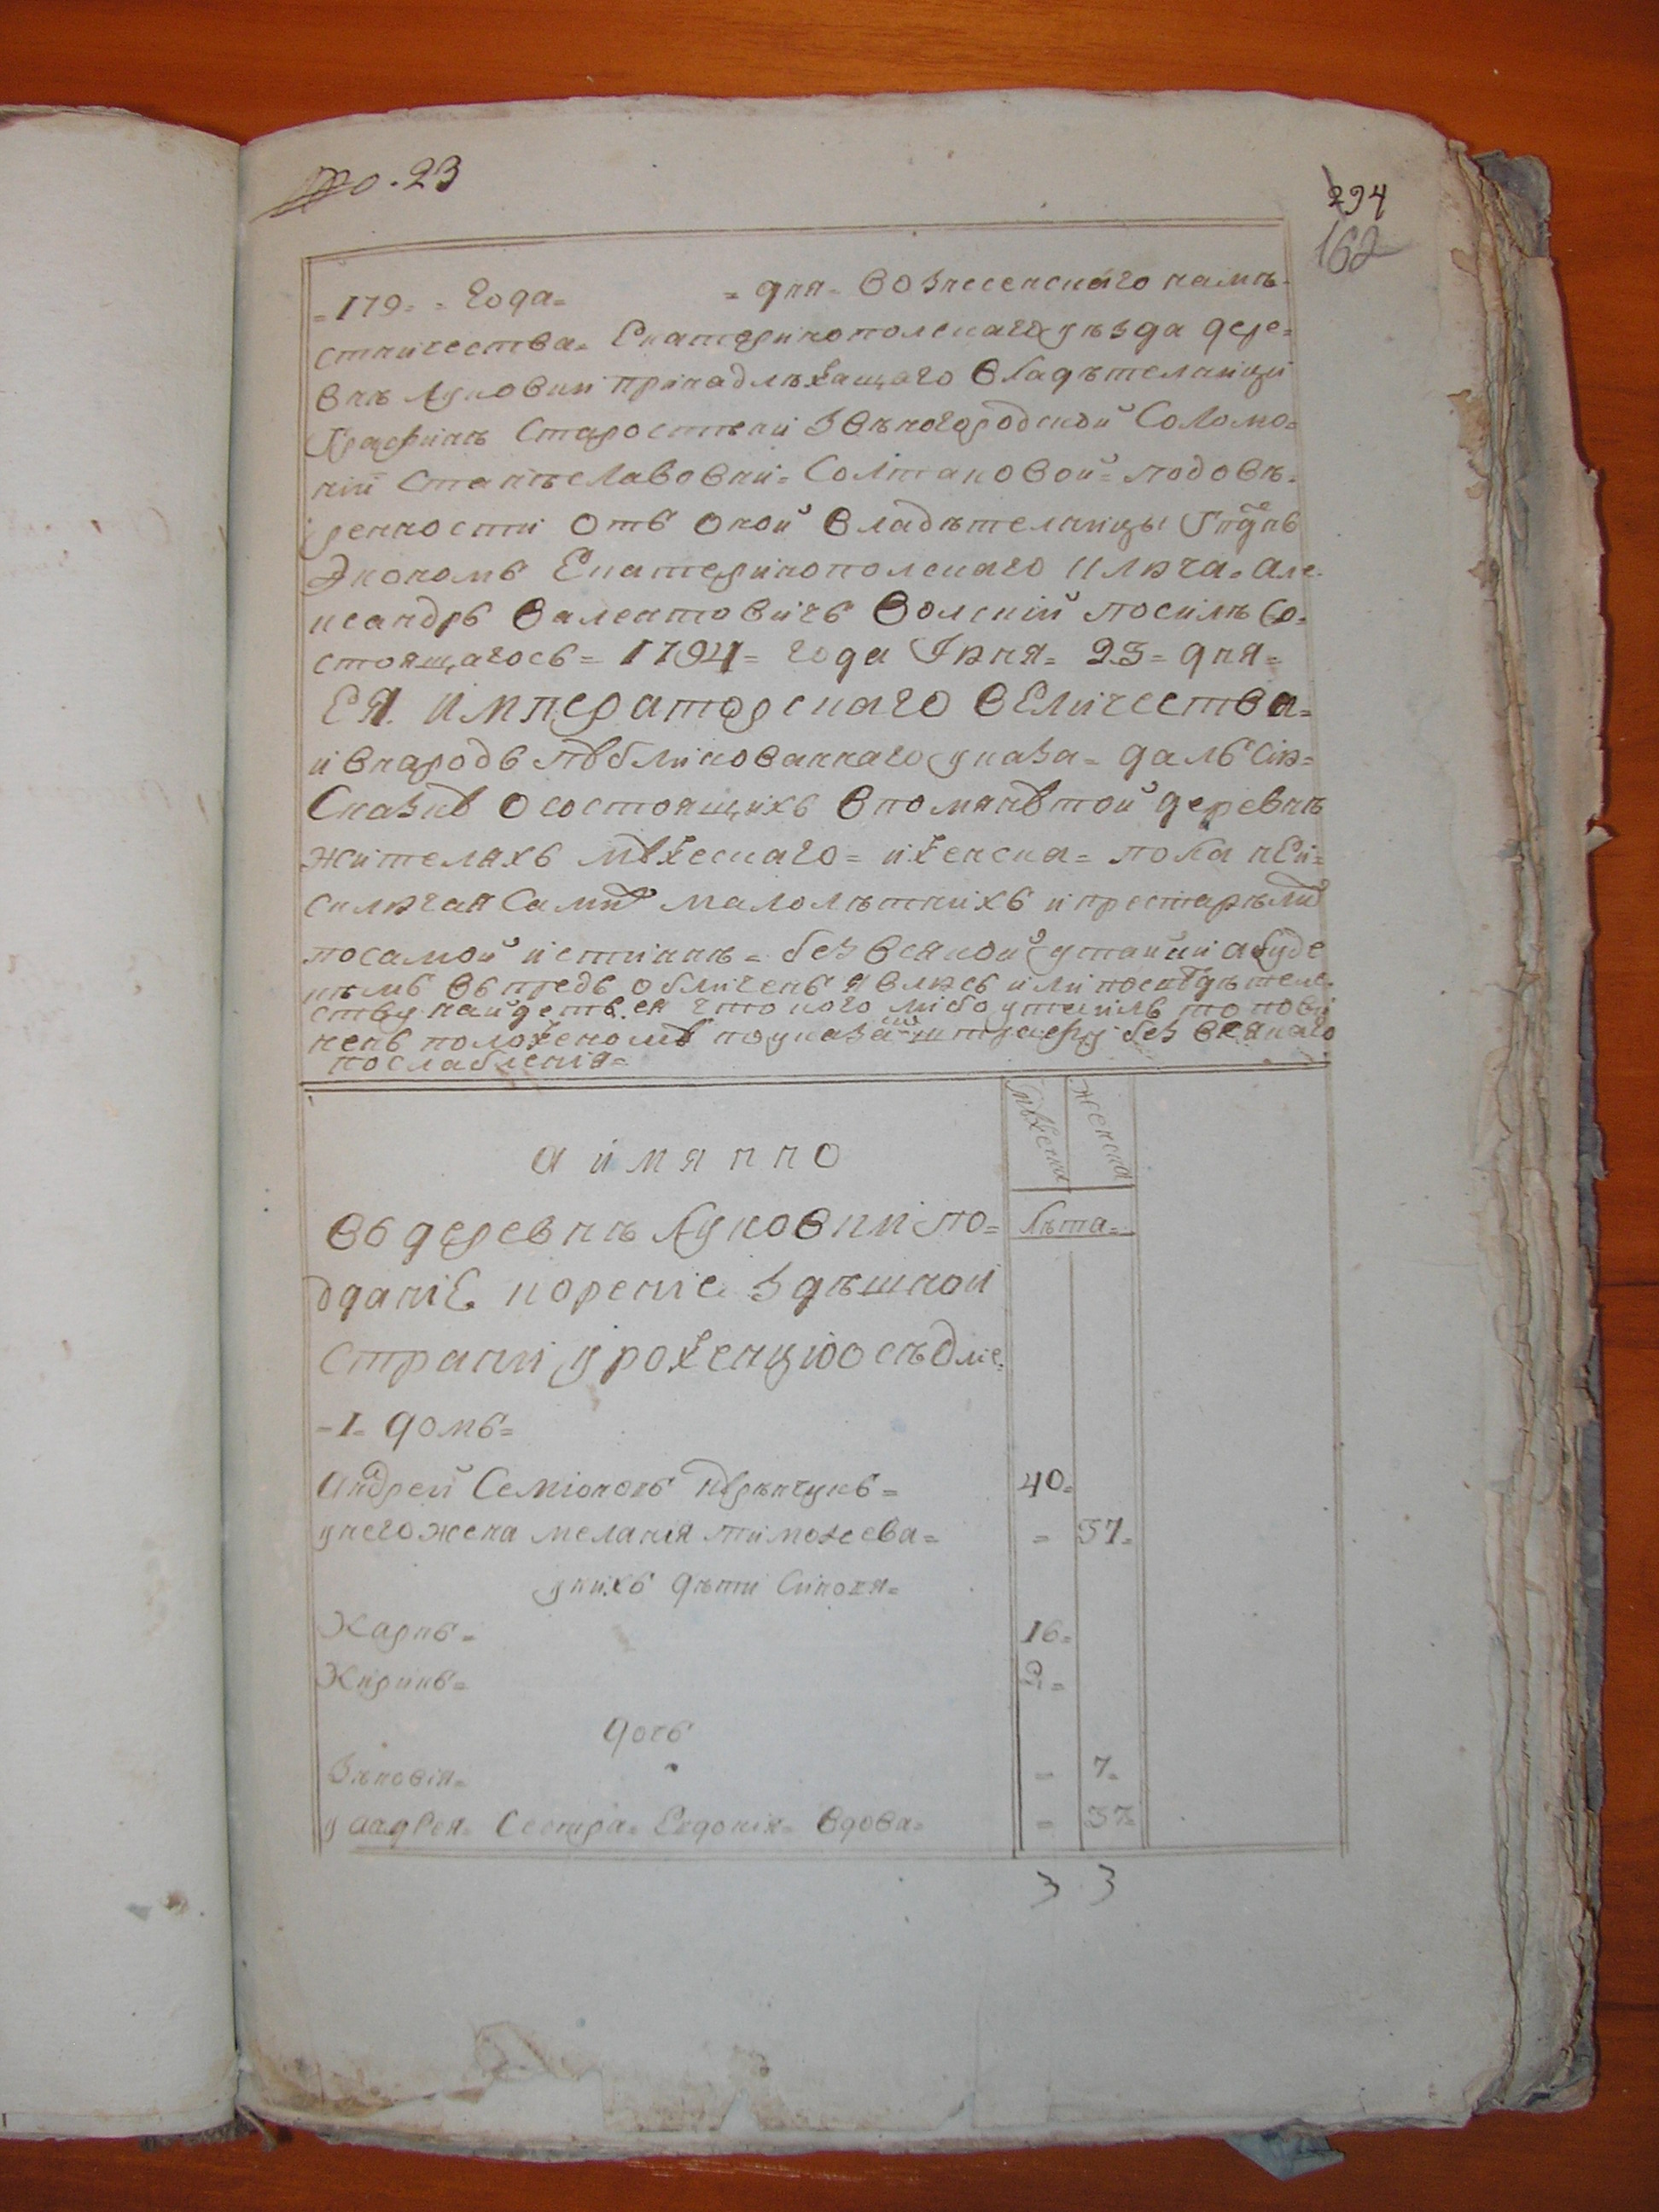 No. 23
294
162
=179= = года= = дня= вознесенскаго намѣ-
стничества= Екатеринополскаго уѣзда дере=
внѣ Луковки принадлѣжащаго владѣтелници
Графинѣ Старостѣни Звѣногородской Соломо=
нїи Станѣславовни= Солтановой= подовѣ=
ренности отъ оной владѣтелницы
Экономъ Екатеринополскаго ключа= Але-
ксандръ валентовичъ волский посилѣ Со=
стоящагось= 1794= года Июня= 23= дня=
ЕЯ императорскаго вЕличества=
и внародъ публикованнаго указа= далъ Сию=
Сказку о состоящихъ впомянутой деревнѣ
жителяхъ мужескаго= иженска= пола нЕи=
сключая Самих малолѣтнихъ ипрестарѣлих
посамой истиннѣ= безвсякой утайки абуде
кѣмъ въпредь обличенъ явлюсь или посвидѣтелс-
ству найдется что кого либо утаилъ то пови
ненъ положеному поуказам штрафу без всякаго
послабления=
мужеска
женска
а имянно
Лѣта=
въ деревнѣ Луковки по=
дданiЕ корение здѣшной
страни уроженцы оседлие
-1- домъ=
Андрей Семіоновъ =
40=
унего жена мелания тимофеева=
= 37=
унихъ дѣти Синовя=
Карпъ=
16=
Кирикъ=
2=
дочь
Зѣновия=
= 7=
у андрея= Сестра= Евдокия= вдова=
= 37=
3 3